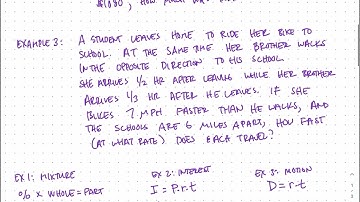 $1,080, HOW MUCH WAS
EXAMPLE 3: A STUDENT LEAVES HOME TO RIDE HER BIKE TO
SCHOOL. AT THE SAME TIME HER BROTHER WALKS
IN THE OPPOSITE DIRECTION TO HIS SCHOOL.
SHE ARRIVES 1/2 HR AFTER LEAVING WHILE HER BROTHER
ARRIVES 1/3 HR AFTER HE LEAVES. IF SHE
BIKES 7 MPH FASTER THAN HE WALKS, AND
THE SCHOOLS ARE 6 MILES APART, HOW FAST
(AT WHAT RATE) DOES EACH TRAVEL?
EX 1: MIXTURE EX 2: INTEREST EX 3: MOTION
% x WHOLE = PART I = P.r.t D = r.t